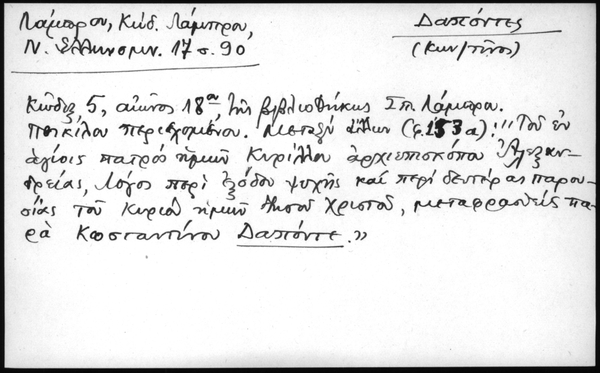 Λάμπρου, Κώδ. Λάμπρου,
Ν. Ἑλληνομν. 17 σ. 90
Δαπόντες
(Κων/τῖνος)
Κῶδιξ 5, αἰῶνος 18ου τῆς βιβλιοθήκης Σπ. Λάμπρου.
Ποικίλου περιεχομένου. Μεταξὺ ἄλλων (φ. 153α): "Τοῦ ἐν
ἁγίοις πατρὸς ἡμῶν Κυρίλλου ἀρχιεπισκόπου Ἀλεξαν-
δρείας, λόγος περὶ ἐξόδου ψυχῆς καὶ περὶ δευτέρας παρου-
σίας τοῦ Κυρίου ἡμῶν Ἰησοῦ Χριστοῦ, μεταφρασθεὶς πα-
ρὰ Κωσταντίνου Δαπόντε."